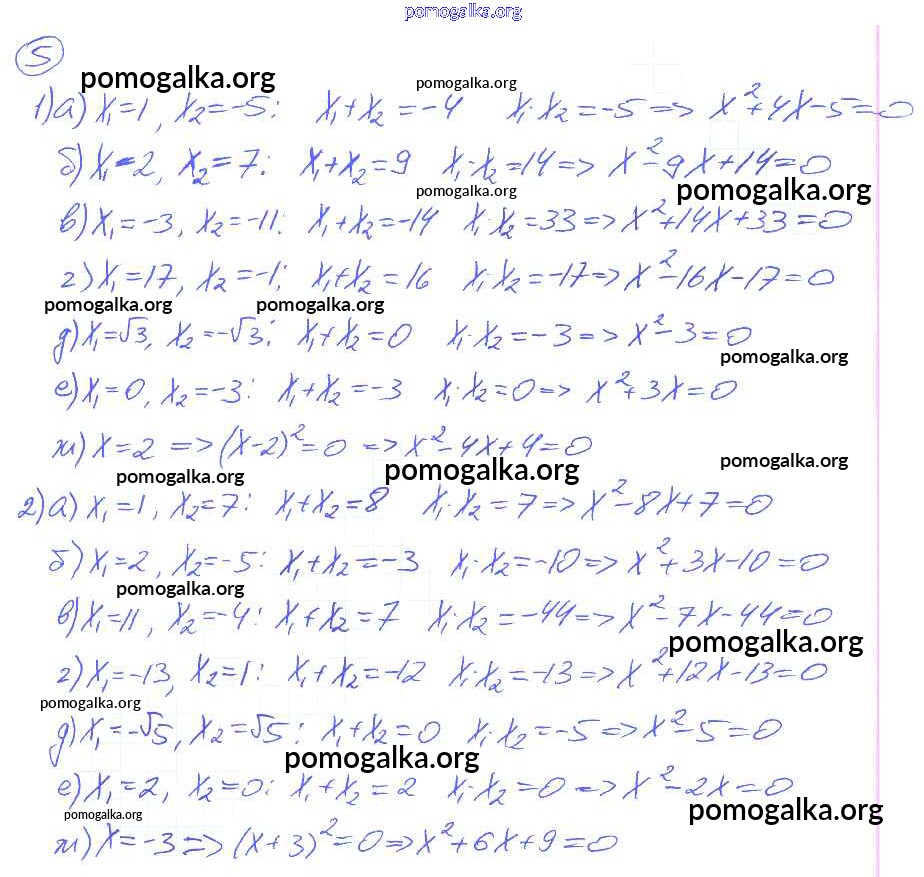 pomogalka.org
5
pomogalka.org pomogalka.org
1) а) x₁=1, x₂=-5: x₁+x₂=-4 x₁·x₂=-5=> x²+4x-5=0
б) x₁=2, x₂=7: x₁+x₂=9 x₁·x₂=14=> x²-9x+14=0
pomogalka.org pomogalka.org
в) x₁=-3, x₂=-11: x₁+x₂=-14 x₁·x₂=33=> x²+14x+33=0
г) x₁=17, x₂=-1; x₁+x₂=16 x₁·x₂=-17=> x²-16x-17=0
pomogalka.org pomogalka.org
д) x₁=√3, x₂=-√3; x₁+x₂=0 x₁·x₂=-3=> x²-3=0
pomogalka.org
е) x₁=0, x₂=-3: x₁+x₂=-3 x₁·x₂=0=> x²+3x=0
ж) x=2 => (x-2)²=0 => x²-4x+4=0
pomogalka.org pomogalka.org pomogalka.org
2) а) x₁=1, x₂=7: x₁+x₂=8 x₁·x₂=7=> x²-8x+7=0
б) x₁=2, x₂=-5: x₁+x₂=-3 x₁·x₂=-10=> x²+3x-10=0
pomogalka.org
в) x₁=11, x₂=-4: x₁+x₂=7 x₁·x₂=-44=> x²-7x-44=0
pomogalka.org
г) x₁=-13, x₂=1: x₁+x₂=-12 x₁·x₂=-13=> x²+12x-13=0
pomogalka.org
д) x₁=-√5, x₂=√5: x₁+x₂=0 x₁·x₂=-5=> x²-5=0
pomogalka.org
е) x₁=2, x₂=0: x₁+x₂=2 x₁·x₂=0=> x²-2x=0
pomogalka.org pomogalka.org
ж) x=-3=> (x+3)²=0=> x²+6x+9=0